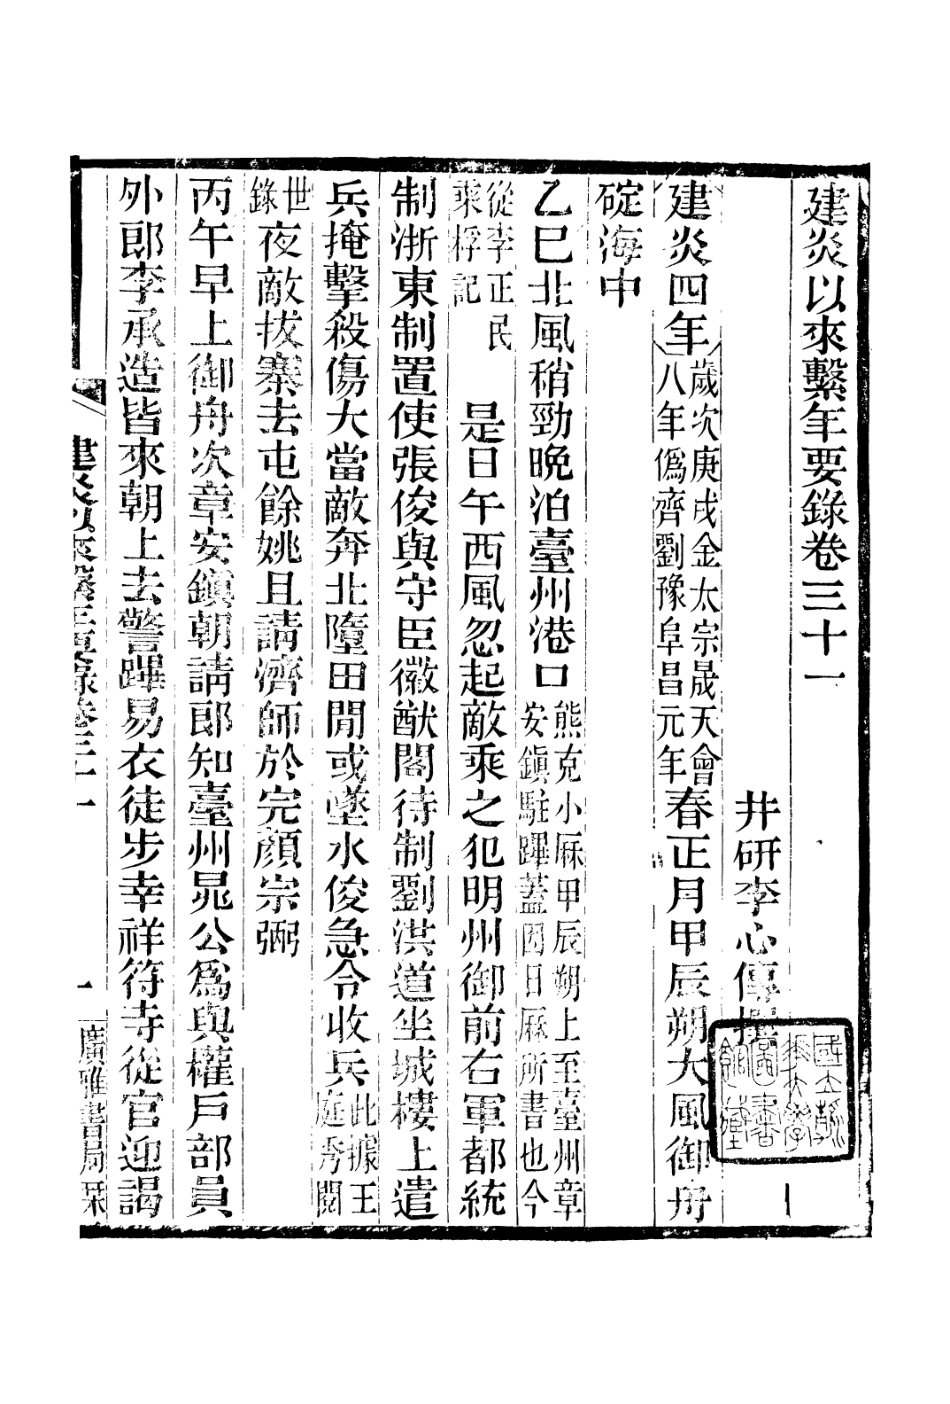 建炎以來繫年要錄卷三十一
井研李心傳撰
建炎四年歲次庚戌金太宗晟天會八年僞齊劉豫阜昌元年春正月甲辰朔大風御舟
碇海中
乙巳北風稍勁晚泊臺州港口熊克小厤甲辰朔上至臺州章安鎮駐蹕蓋因日厤所書也今
從李正民乘桴記是日午西風忽起敵乘之犯明州御前右軍都統
制浙東制置使張俊與守臣徽猷閣待制劉洪道坐城樓上遣
兵掩擊殺傷大當敵奔北墮田閒或墜水俊急令收兵此據王庭秀閱
世錄夜敵拔寨去屯餘姚且請濟師於完顏宗弼
丙午早上御舟次章安鎮朝請郎知臺州晁公爲與權戶部員
外郎李承造皆來朝上去警蹕易衣徒步幸祥符寺從官迎謁
建炎以來繫年要錄卷三十一
一
廣雅書局栞